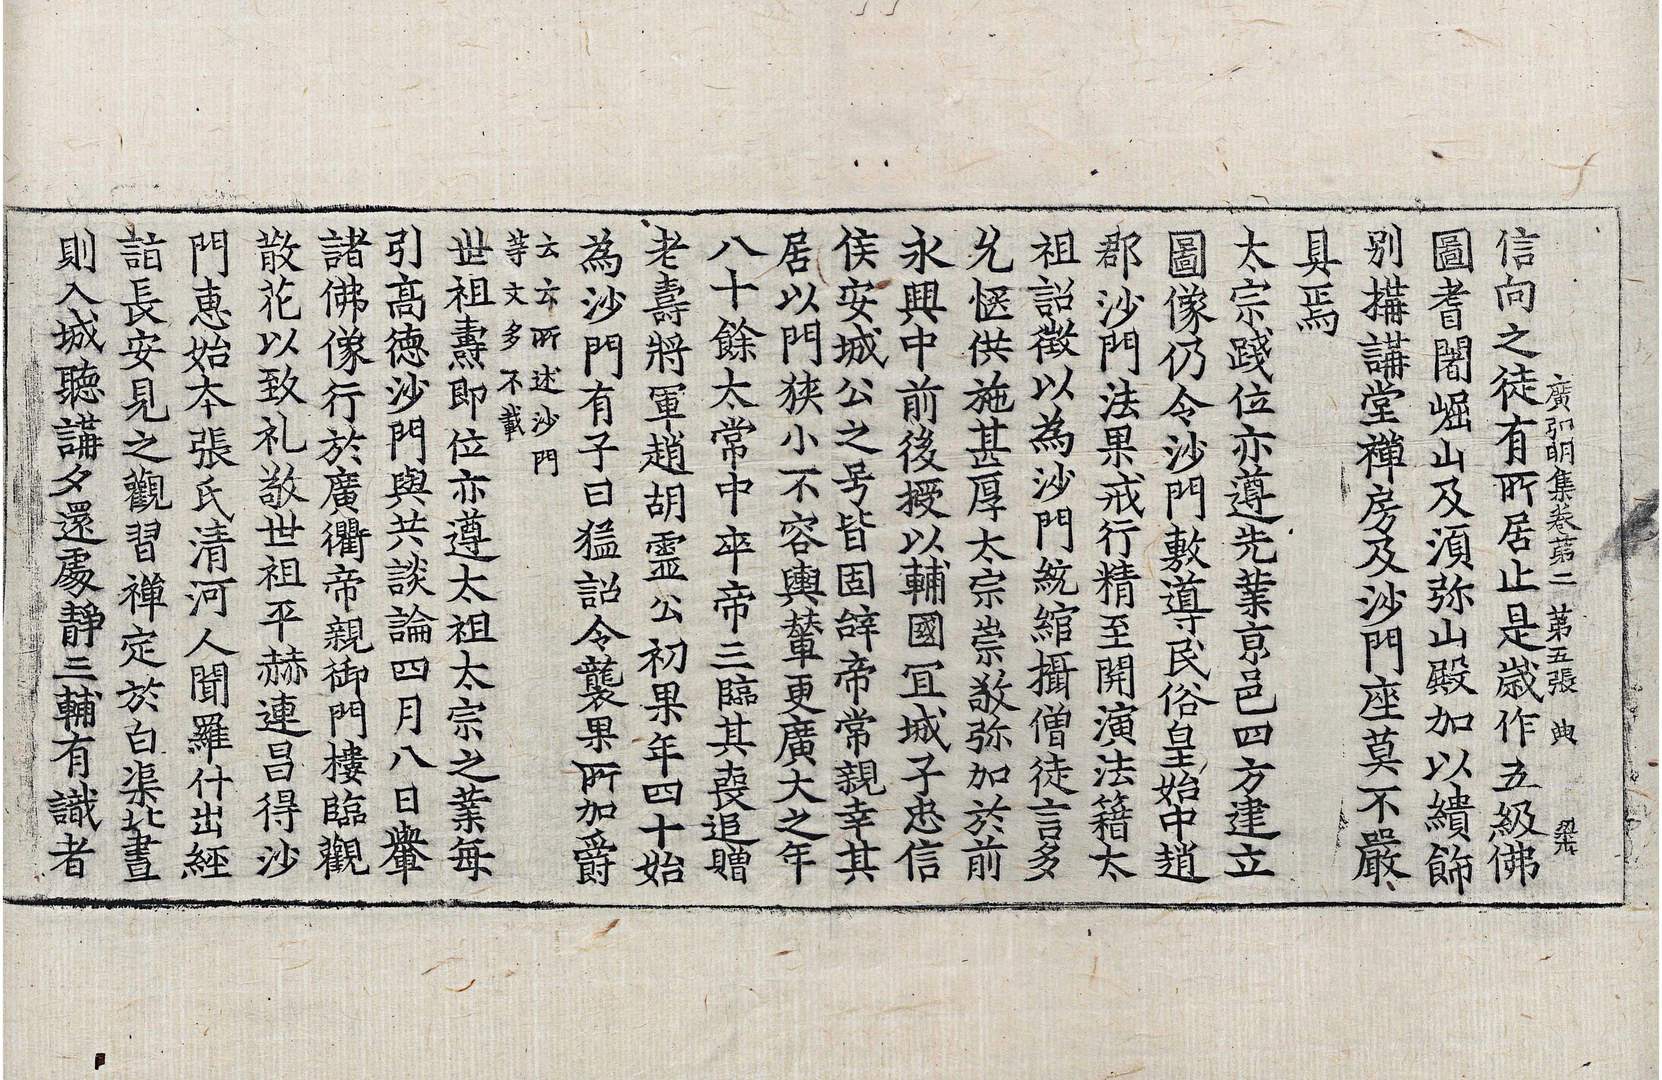 廣弘明集卷苐二　苐五張　典
信向之徒有所居止是歲作五級佛
圖耆闍崛山及湏弥山殿加以繢飾
別搆講堂禪房及沙門座莫不嚴
具焉
太宗踐位亦遵先業京邑四方建立
圖像仍令沙門敷導民俗皇始中趙
郡沙門法果戒行精至開演法籍太
祖詔徵以為沙門統綰攝僧徒言多
允愜供施甚厚太宗崇敬弥加於前
永興中前後授以輔國冝城子忠信
侯安城公之号皆固辝帝常親幸其
居以門狹小不容輿輦更廣大之年
八十餘太常中卒帝三臨其喪追贈
老壽將軍趙胡靈公初果年四十始
為沙門有子曰猛詔令襲果所加爵
云云所述沙門
等文多不載
世祖燾即位亦遵太祖太宗之業每
引高德沙門與共談論四月八日轝
諸佛像行於廣衢帝親御門樓臨觀
散花以致礼敬世祖平赫連昌得沙
門惠始本張氏清河人聞羅什出經
詣長安見之觀習禪定於白渠北晝
則入城聽講夕還處靜三輔有識者